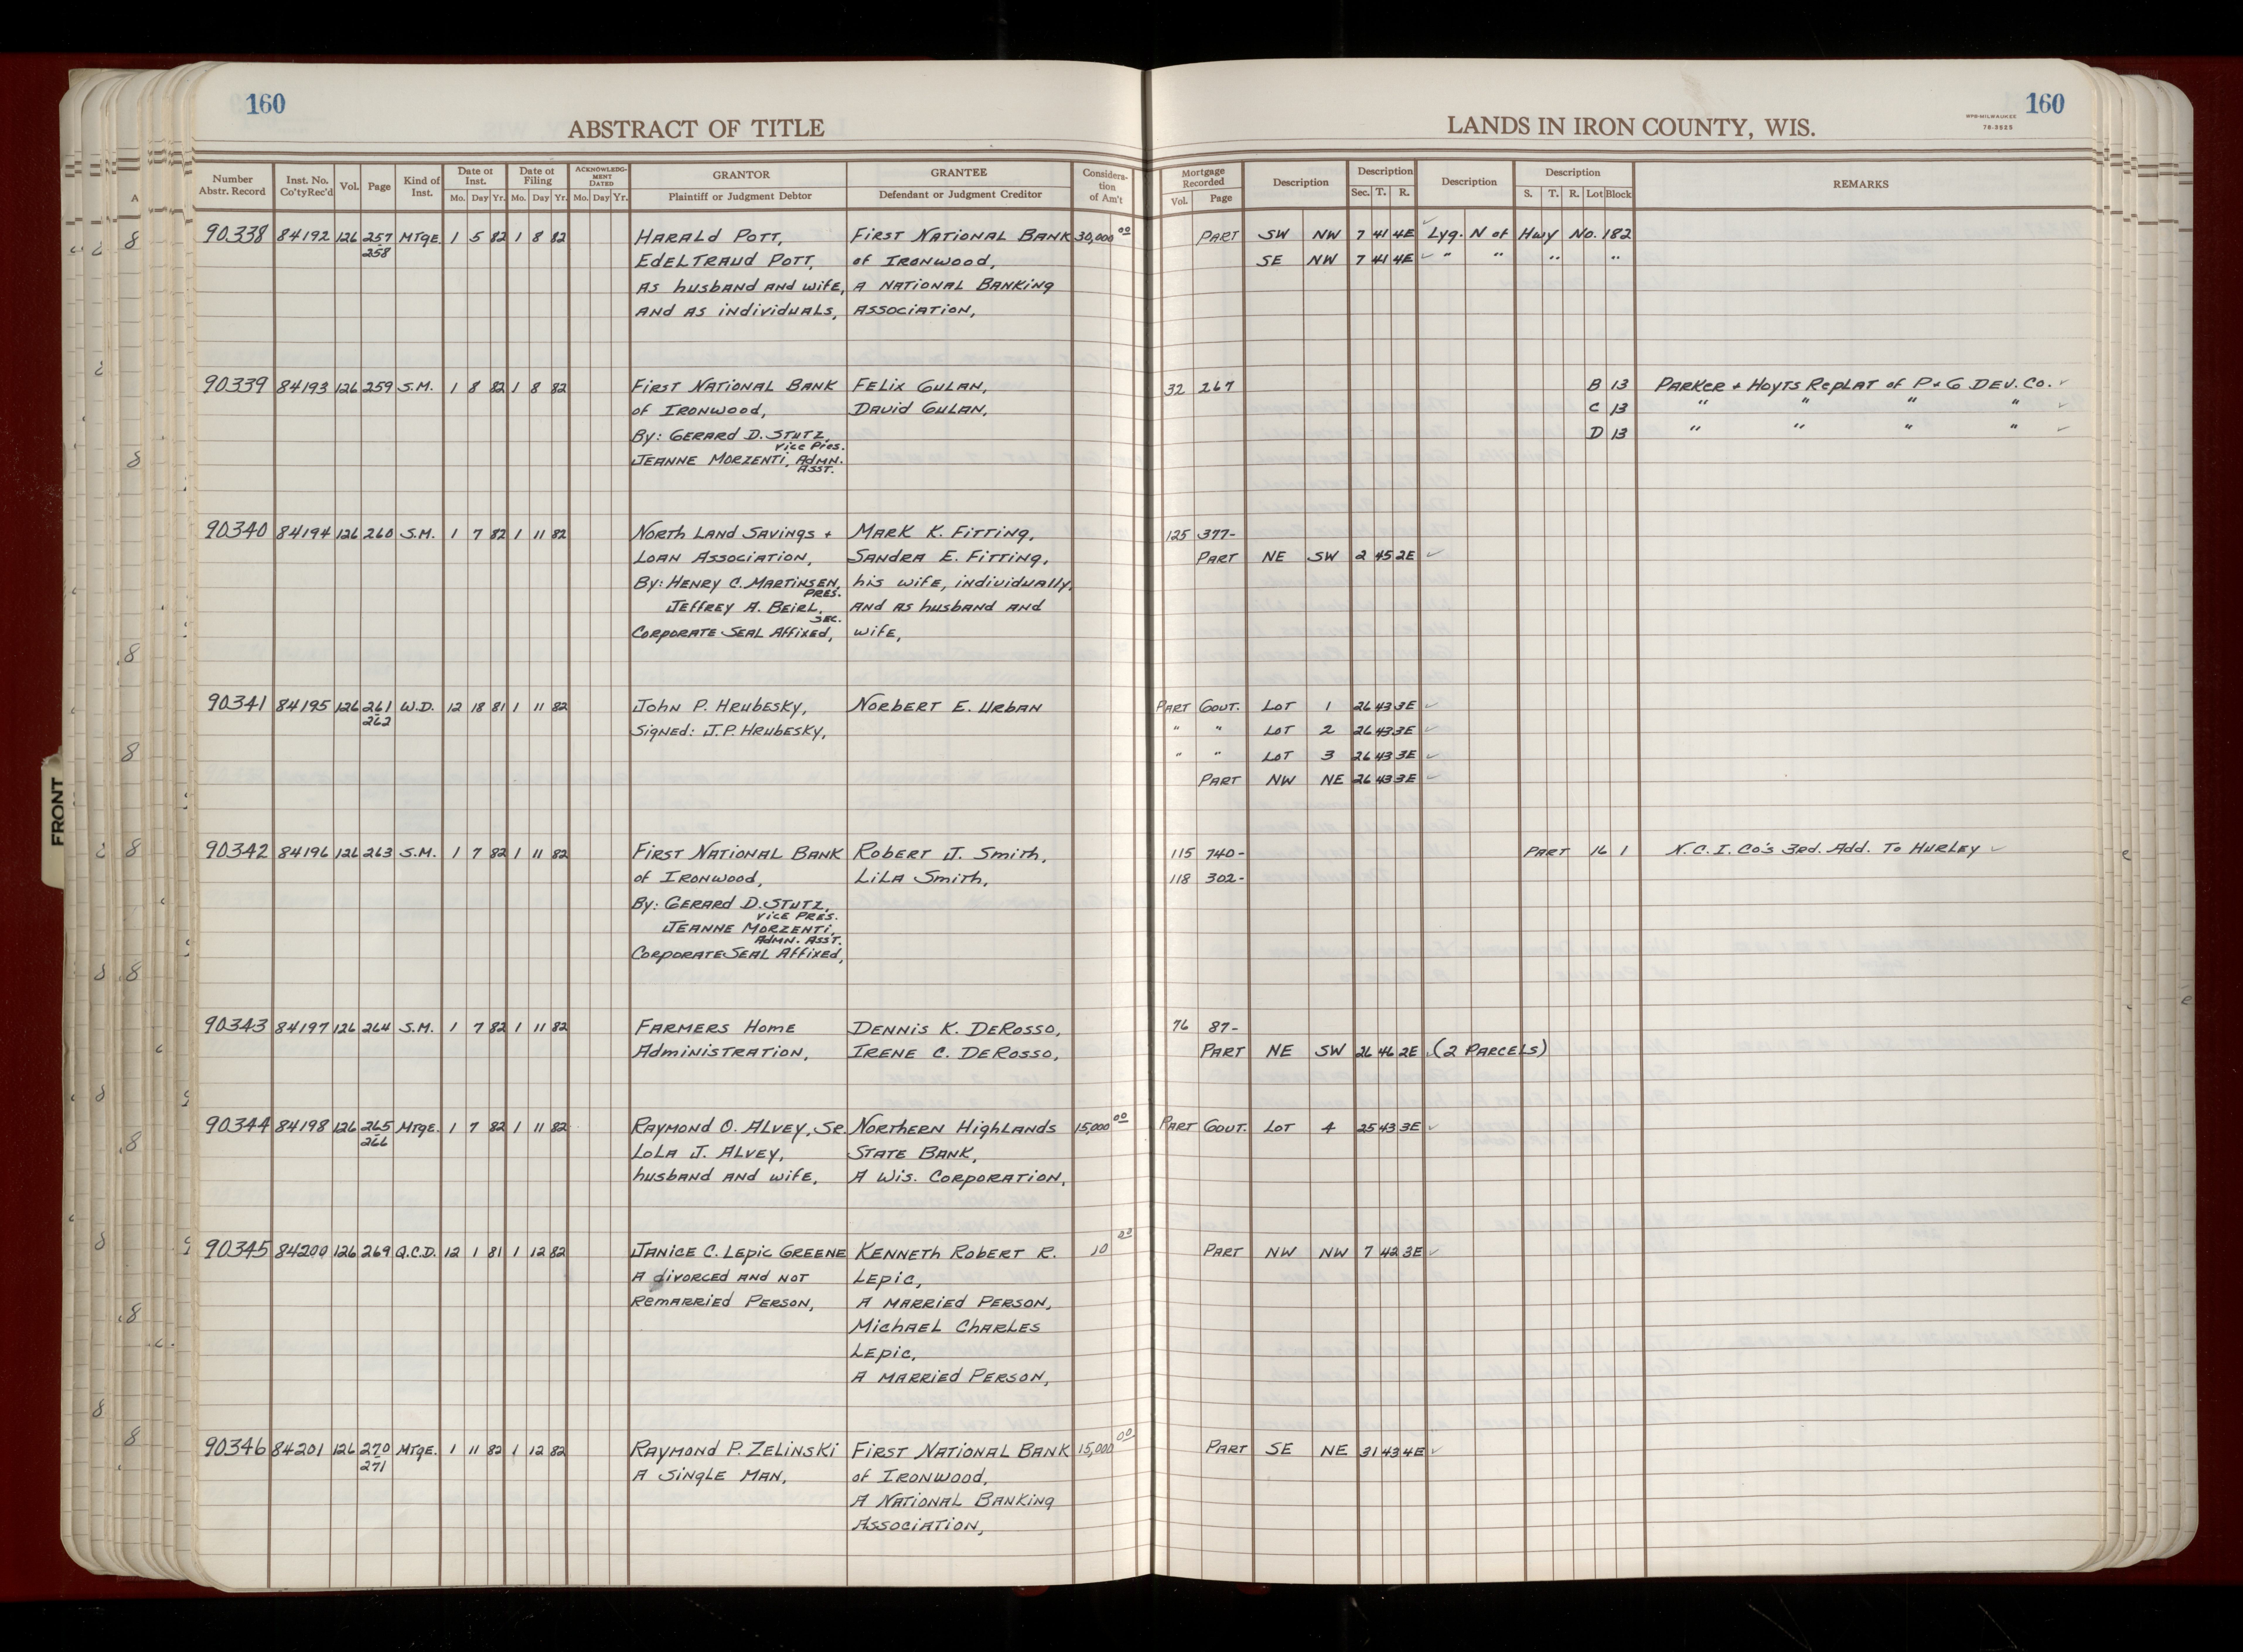 160
ABSTRACT OF TITLE
LANDS IN IRON COUNTY, WIS.
WPB-MILWAUKEE
78-3525
160
Number Abstr. Record | Inst. No. Co'ty Rec'd | Vol. | Page | Kind of Inst. | Date of Inst. Mo. Day Yr. | Date of Filing Mo. Day Yr. | ACKNOWLEDG-MENT DATED Mo. Day Yr. | GRANTOR Plaintiff or Judgment Debtor | GRANTEE Defendant or Judgment Creditor | Considera-tion of Am't | Mortgage Recorded Vol. Page | Description | Description Sec. T. R. | Description | Description S. T. R. Lot Block | REMARKS
90338 84192 126 257 MTGE. 1 5 82 1 8 82 HARALD POTT, FIRST NATIONAL BANK 30,000 00 PART SW NW 7 41 4E Lyg. N of Hwy No. 182
258 EDELTRAUD POTT, of IRONWOOD, SE NW 7 41 4E " " " "
AS husband AND wife, A NATIONAL BANKING
AND AS individuals, ASSOCIATION,
90339 84193 126 259 S.M. 1 8 82 1 8 82 FIRST NATIONAL BANK FELIX GULAN, 32 267 B 13 PARKER + HOYTS REPLAT of P + G DEV. CO.
of IRONWOOD, DAVID GULAN, C 13 " " " "
By: GERARD D. STUTZ, D 13 " " " "
Vice Pres.
JEANNE MORZENTI, ADMN.
ASST.
90340 84194 126 260 S.M. 1 7 82 1 11 82 NORTH LAND SAVINGS + MARK K. FITTING, 125 377-
LOAN ASSOCIATION, SANDRA E. FITTING, PART NE SW 2 45 2E
By: HENRY C. MARTINSEN, his wife, individually,
PRES.
JEFFREY A. BEIRL, AND AS husband AND
SEC.
CORPORATE SEAL Affixed, wife,
90341 84195 126 261 W.D. 12 18 81 1 11 82 John P. HRUBESKY, NORBERT E. URBAN PART GOUT. LOT 1 26 43 3E
262 Signed: J.P. HRUBESKY, " " LOT 2 26 43 3E
" " LOT 3 26 43 3E
PART NW NE 26 43 3E
90342 84196 126 263 S.M. 1 7 82 1 11 82 FIRST NATIONAL BANK ROBERT J. Smith, 115 740- PART 16 1 N.C.I. Co's 3RD. Add. To HURLEY
of IRONWOOD, LILA Smith, 118 302-
By: GERARD D. STUTZ,
Vice PRES.
JEANNE MORZENTI,
ADMN. ASST.
CORPORATE SEAL Affixed,
90343 84197 126 264 S.M. 1 7 82 1 11 82 FARMERS Home DENNIS K. DEROSSO, 76 87-
ADMINISTRATION, IRENE C. DEROSSO, PART NE SW 26 46 2E (2 PARCELS)
90344 84198 126 265 MTGE. 1 7 82 1 11 82 RAYMOND O. ALVEY, SR NORTHERN HIGHLANDS 15,000 00 PART GOUT. LOT 4 25 43 3E
266 LOLA J. ALVEY, STATE BANK,
husband AND wife, A Wis. CORPORATION,
90345 84200 126 269 Q.C.D. 12 1 81 1 12 82 JANICE C. LEPIC GREENE KENNETH ROBERT R. 10 00 PART NW NW 7 42 3E
A divorced AND NOT LEPIC,
REMARRIED PERSON, A MARRIED PERSON,
MICHAEL CHARLES
LEPIC,
A MARRIED PERSON,
90346 84201 126 270 MTGE. 1 11 82 1 12 82 RAYMOND P. ZELINSKI FIRST NATIONAL BANK 15,000 00 PART SE NE 31 43 4E
271 A SINGLE MAN, of IRONWOOD,
A NATIONAL BANKING
ASSOCIATION,
FRONT